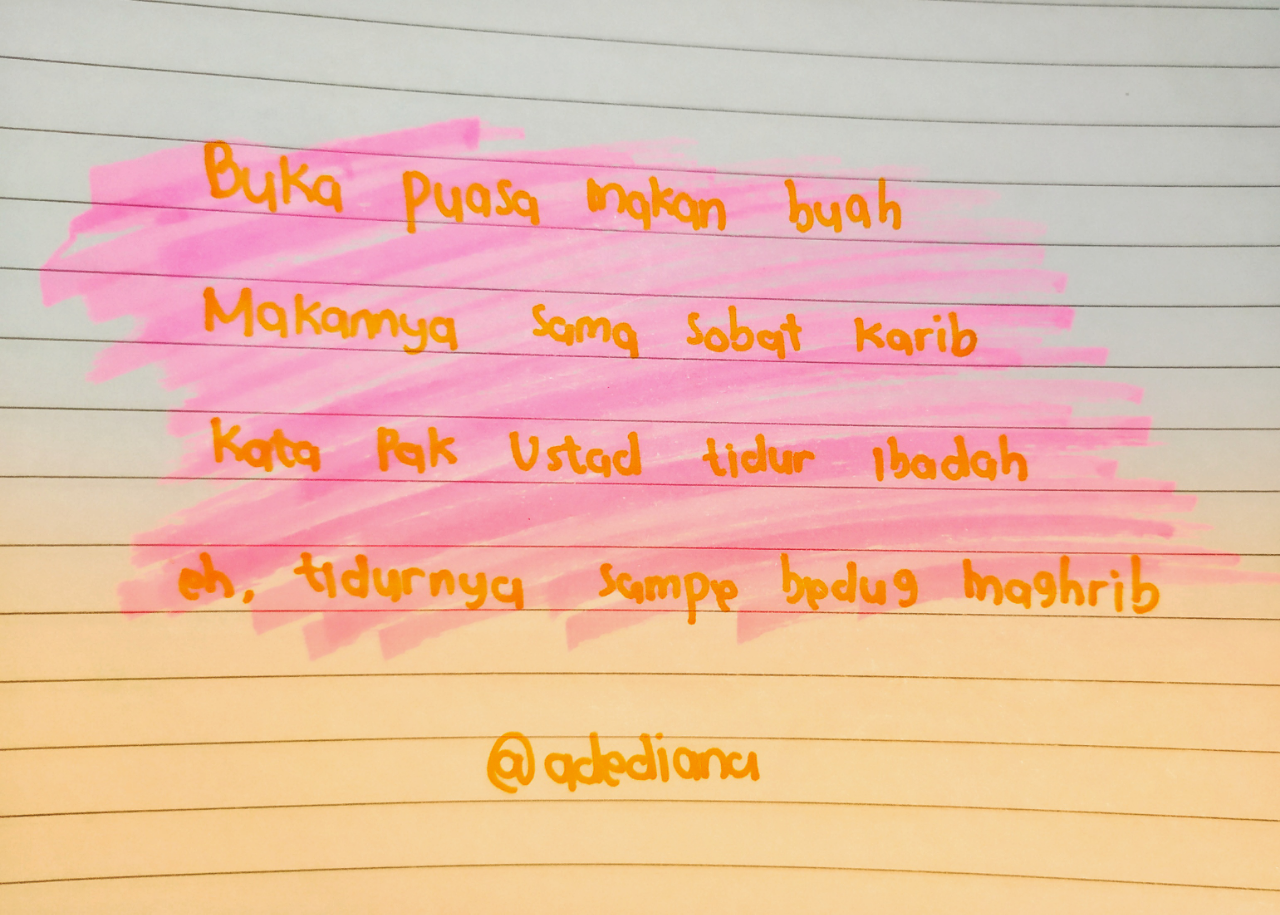 Buka puasa makan buah
Makannya sama sobat karib
Kata Pak Ustad tidur Ibadah
eh, tidurnya sampe bedug maghrib
@adediana